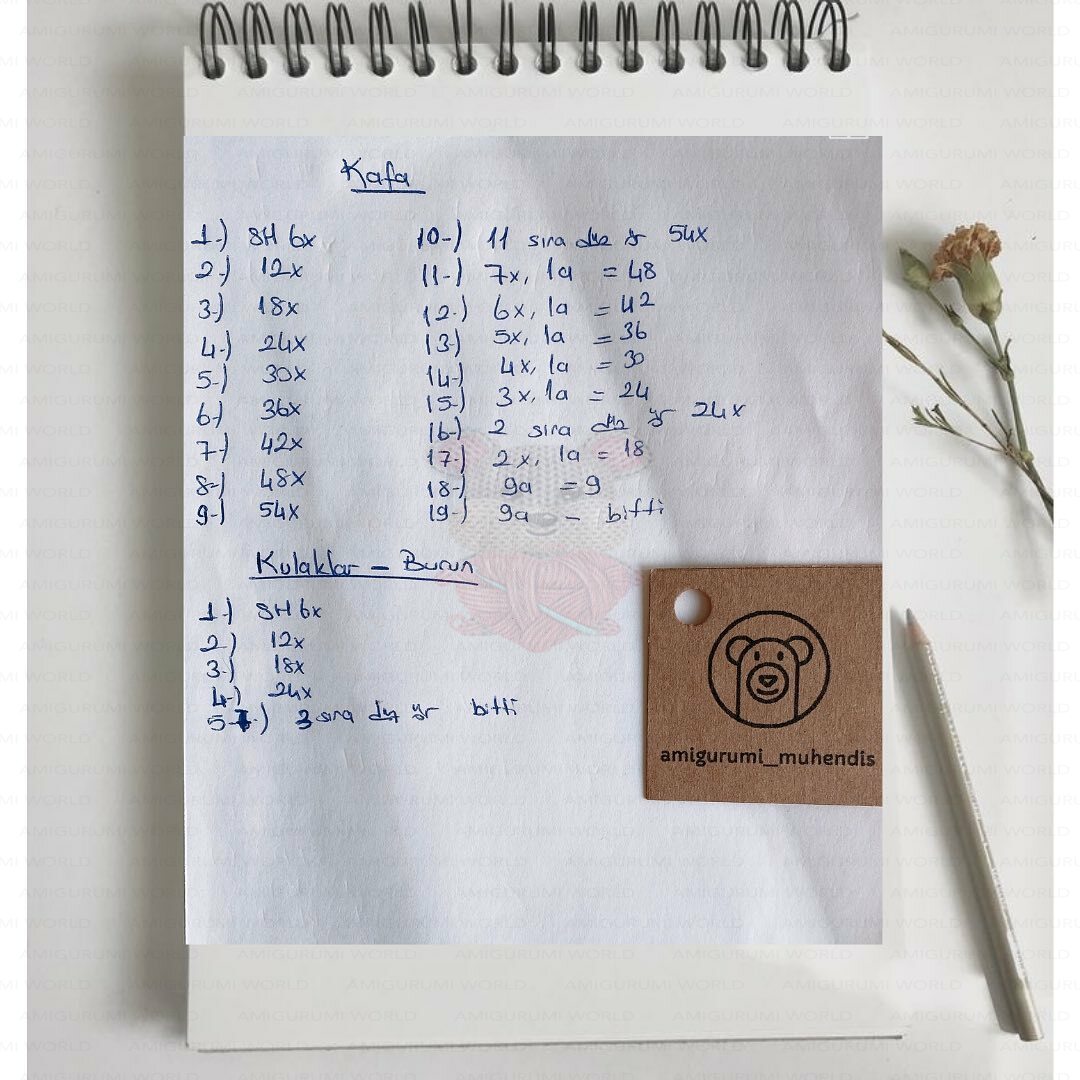 Kafa
1-) SH 6x
2-) 12x
3-) 18x
4-) 24x
5-) 30x
6-) 36x
7-) 42x
8-) 48x
9-) 54x
10-) 11 sıra düz ör 54x
11-) 7x, 1a = 48
12-) 6x, 1a = 42
13-) 5x, 1a = 36
14-) 4x, 1a = 30
15-) 3x, 1a = 24
16-) 2 sıra düz ör 24x
17-) 2x, 1a = 18
18-) 9a = 9
19-) 9a - bitti
Kulaklar - Burun
1-) SH 6x
2-) 12x
3-) 18x
4-) 24x
5-) 3 sıra düz ör bitti
amigurumi_muhendis
AMIGURUMI WORLD